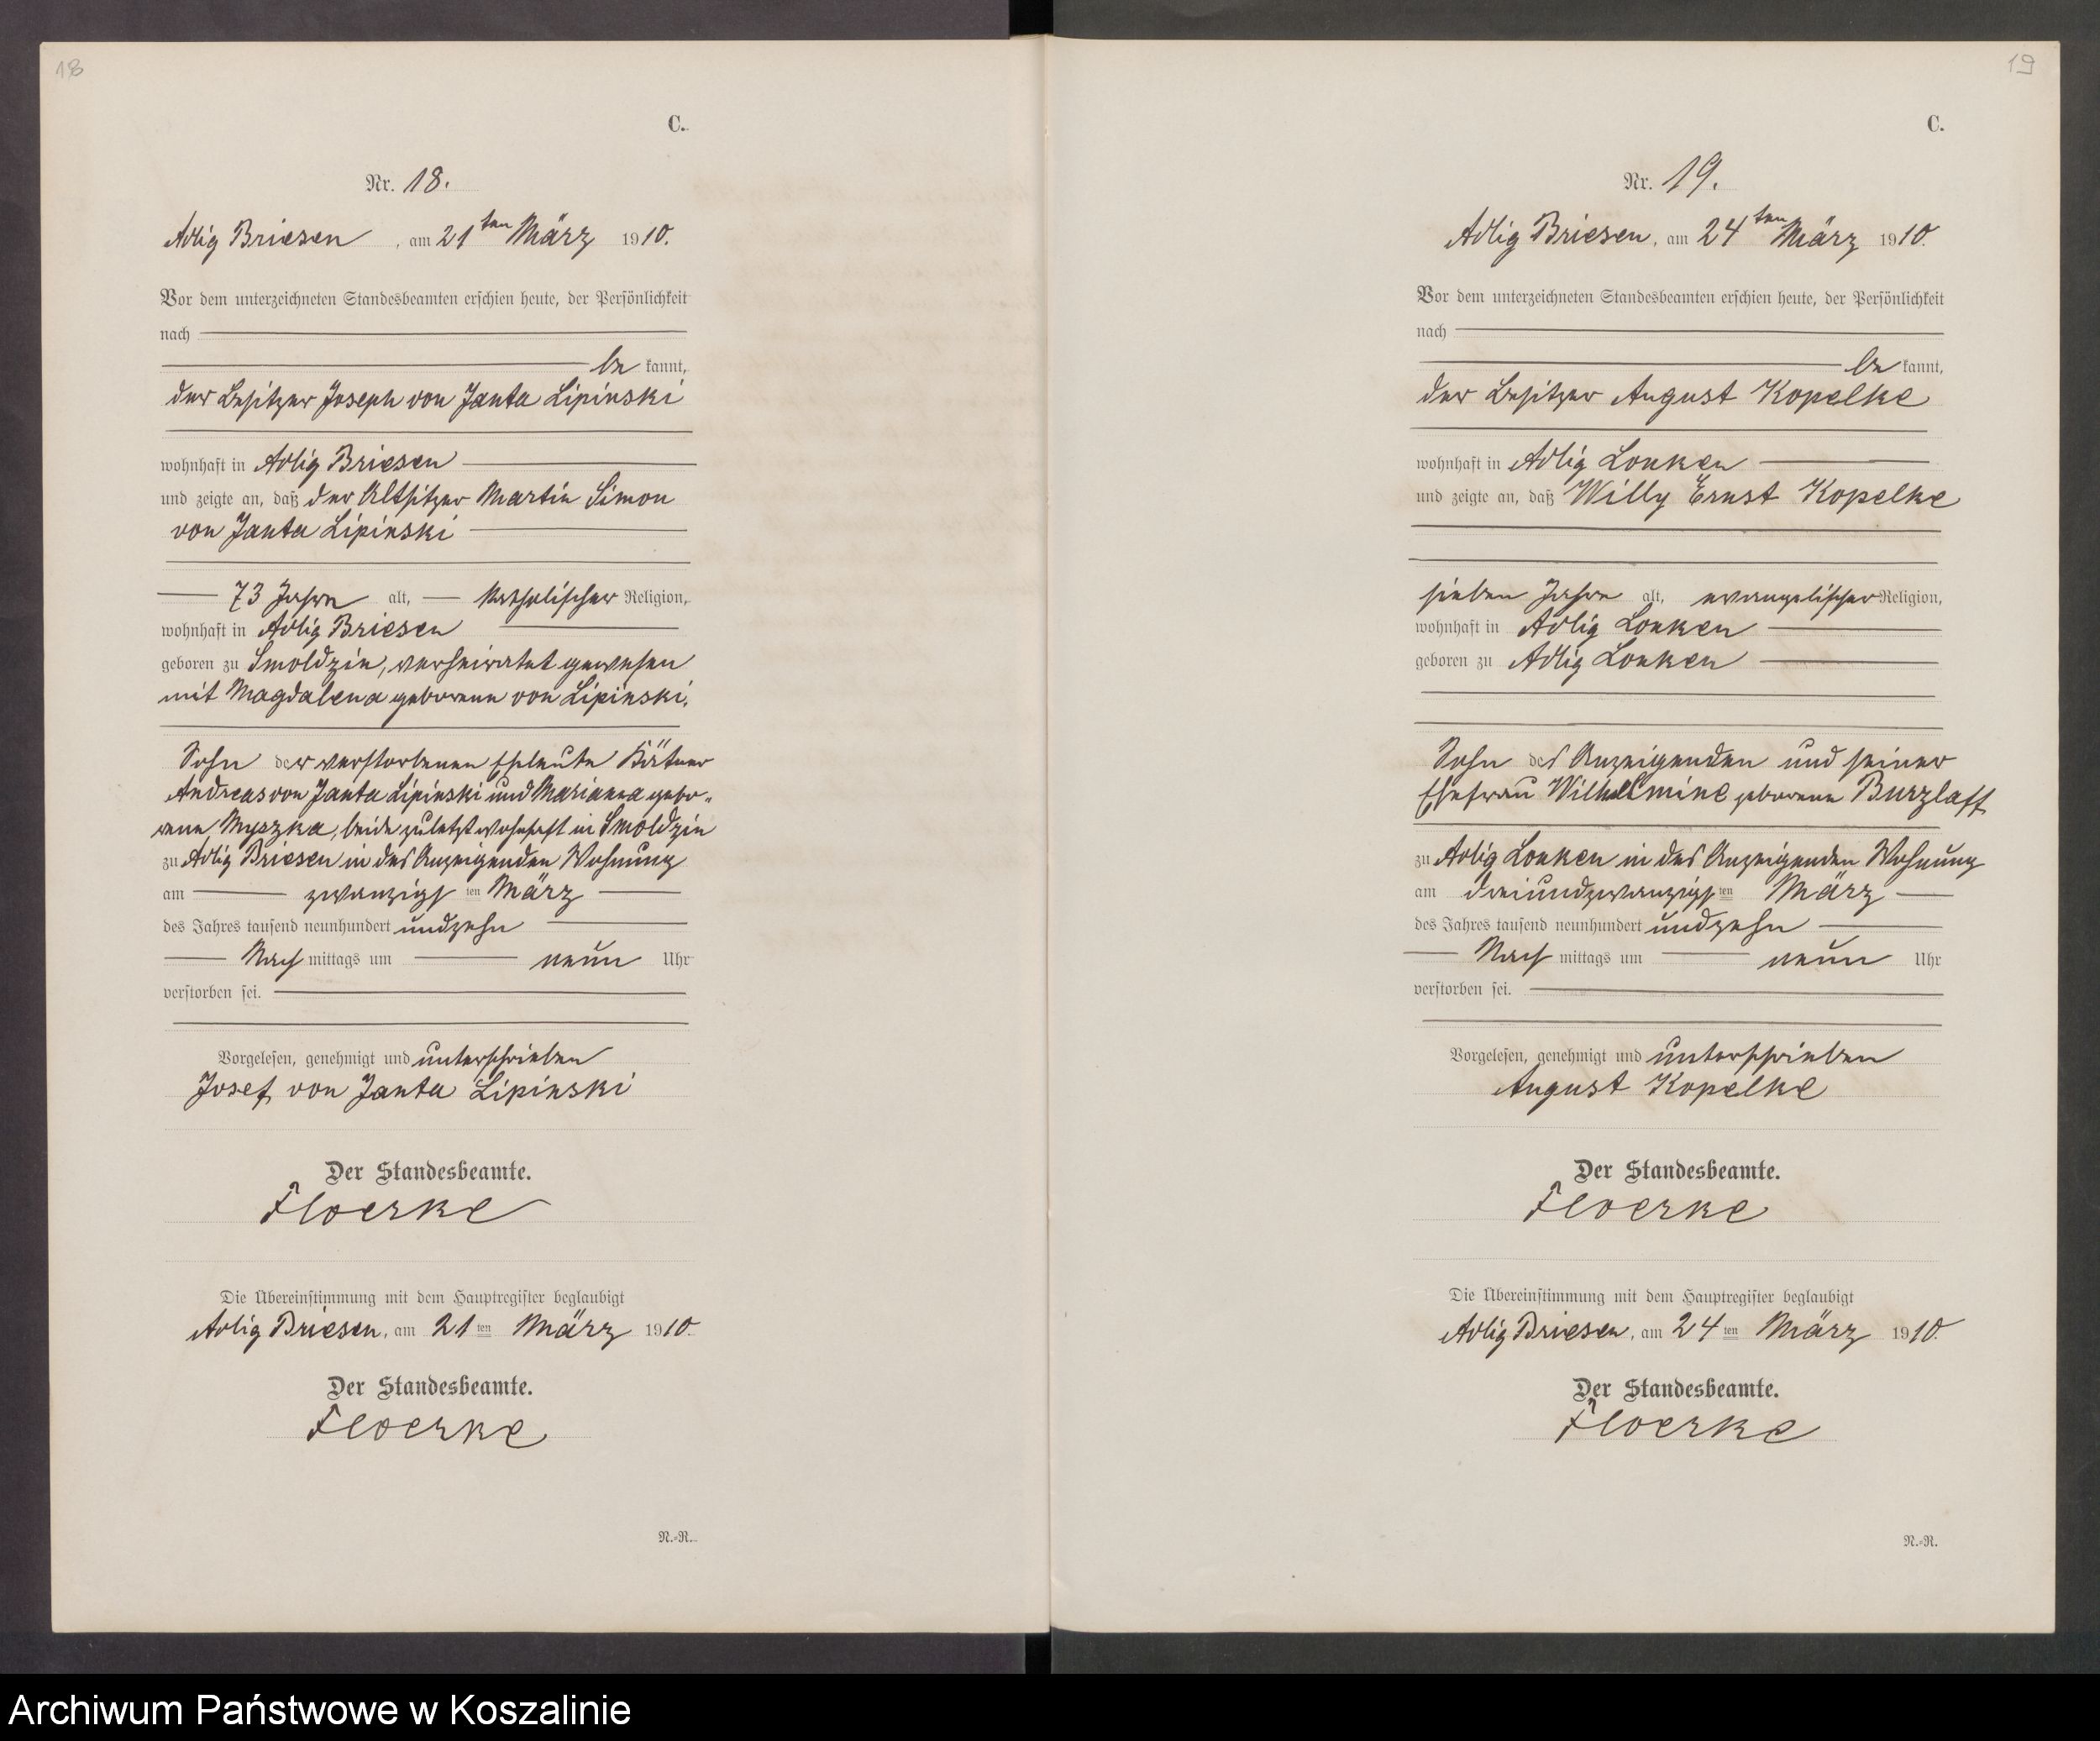 18
C.
Nr. 18.
Adlig Briesen, am 21ten März 1910.
Vor dem unterzeichneten Standesbeamten erschien heute, der Persönlichkeit
nach
be kannt,
der Besitzer Joseph von Janta Lipinski
wohnhaft in Adlig Briesen
und zeigte an, daß der Altsitzer Martin Simon
von Janta Lipinski
73 Jahre alt, katholischer Religion,
wohnhaft in Adlig Briesen
geboren zu Smoldzin, verheiratet gewesen
mit Magdalena geborene von Lipinski,
Sohn der verstorbenen Eheleute Kätner
Andreas von Janta Lipinski und Marianna gebo-
rene Myszka, beide zuletzt wohnhaft in Smoldzin
zu Adlig Briesen in des Anzeigenden Wohnung
am zwanzigsten März
des Jahres tausend neunhundert undzehn
Nach mittags um neun Uhr
verstorben sei.
Vorgelesen, genehmigt und unterschrieben
Josef von Janta Lipinski
Der Standesbeamte.
Floerke
Die Übereinstimmung mit dem Hauptregister beglaubigt
Adlig Briesen, am 21ten März 1910.
Der Standesbeamte.
Floerke
N.=R.
19
C.
Nr. 19.
Adlig Briesen, am 24ten März 1910.
Vor dem unterzeichneten Standesbeamten erschien heute, der Persönlichkeit
nach
be kannt,
der Besitzer August Kopelke
wohnhaft in Adlig Lonken
und zeigte an, daß Willy Ernst Kopelke
sieben Jahre alt, evangelischer Religion,
wohnhaft in Adlig Lonken
geboren zu Adlig Lonken
Sohn des Anzeigenden und seiner
Ehefrau Wilhelmine geborene Burzlaff
zu Adlig Lonken in des Anzeigenden Wohnung
am dreiundzwanzigsten März
des Jahres tausend neunhundert undzehn
Nach mittags um neun Uhr
verstorben sei.
Vorgelesen, genehmigt und unterschrieben
August Kopelke
Der Standesbeamte.
Floerke
Die Übereinstimmung mit dem Hauptregister beglaubigt
Adlig Briesen, am 24ten März 1910.
Der Standesbeamte.
Floerke
N.=R.
Archiwum Państwowe w Koszalinie